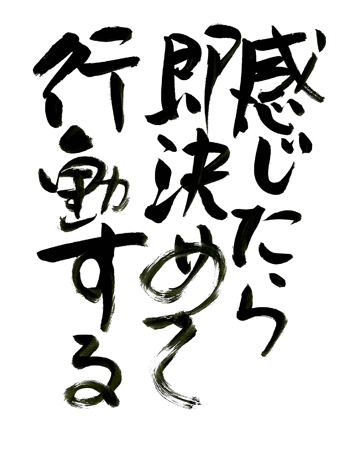 感じたら
即決めて
行動する